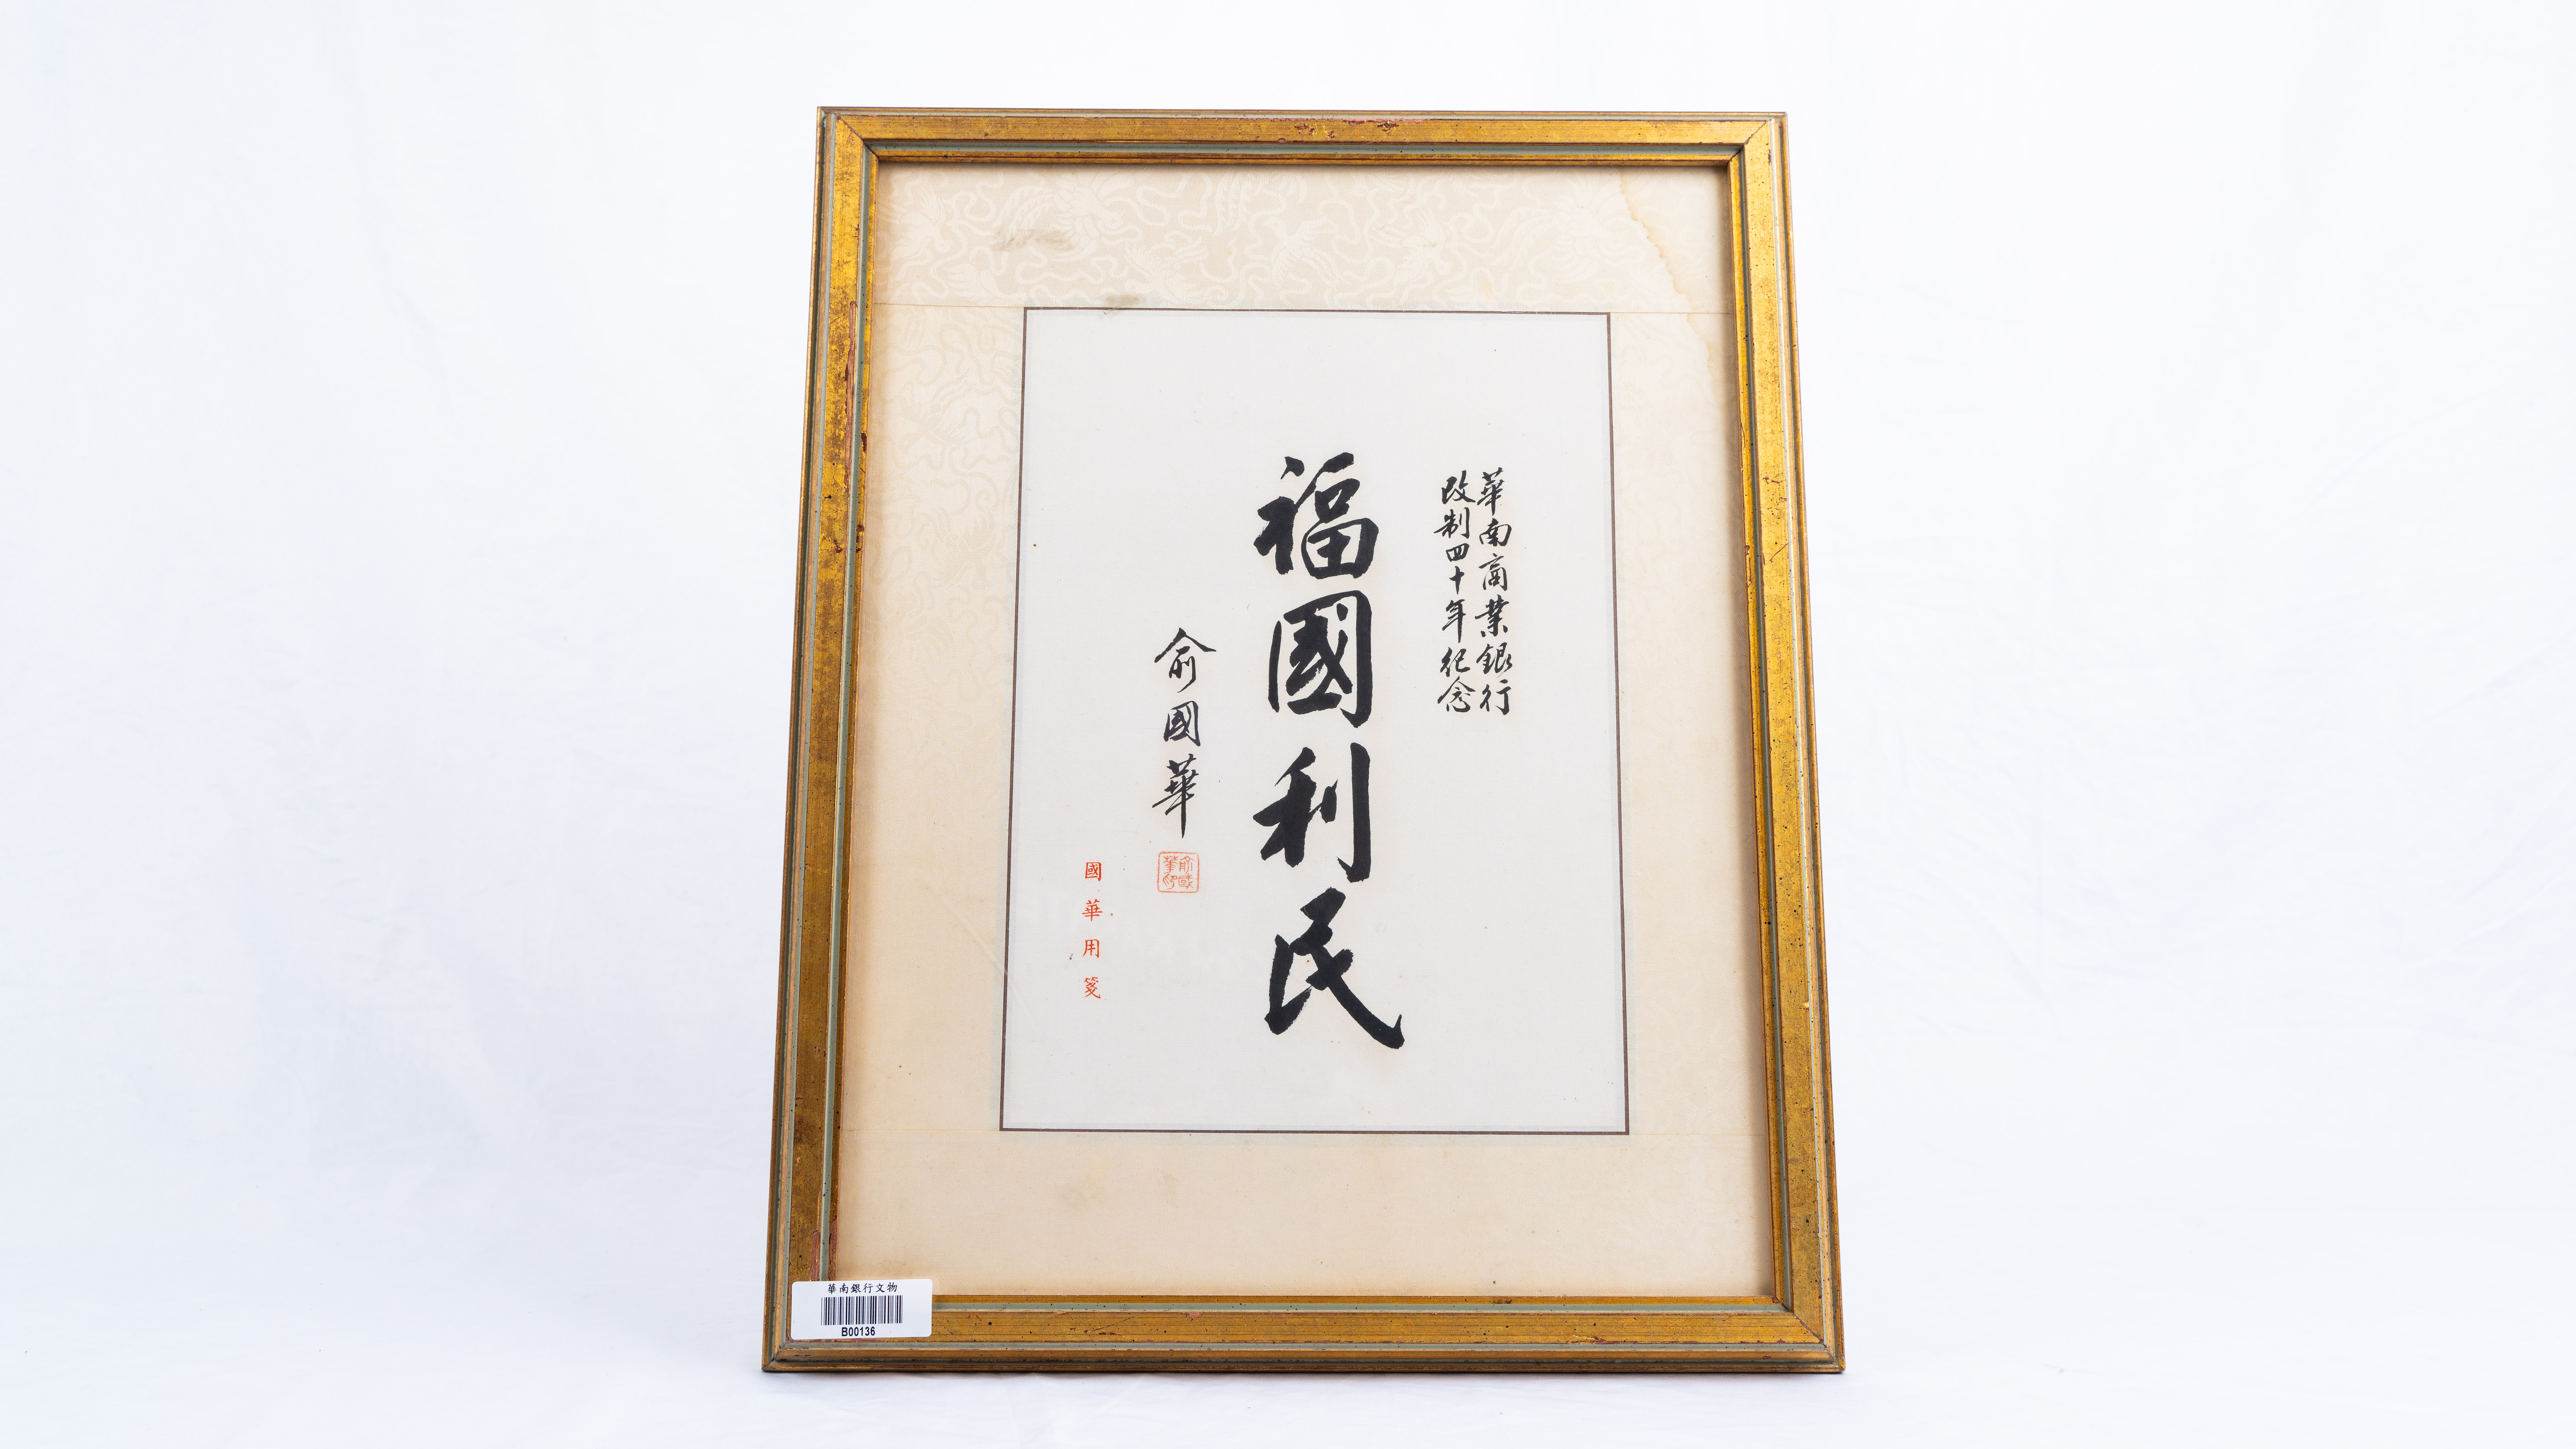 華南商業銀行
改制四十年紀念
福國利民
俞國華
俞國華印
國華用箋
華南銀行文物
B00136